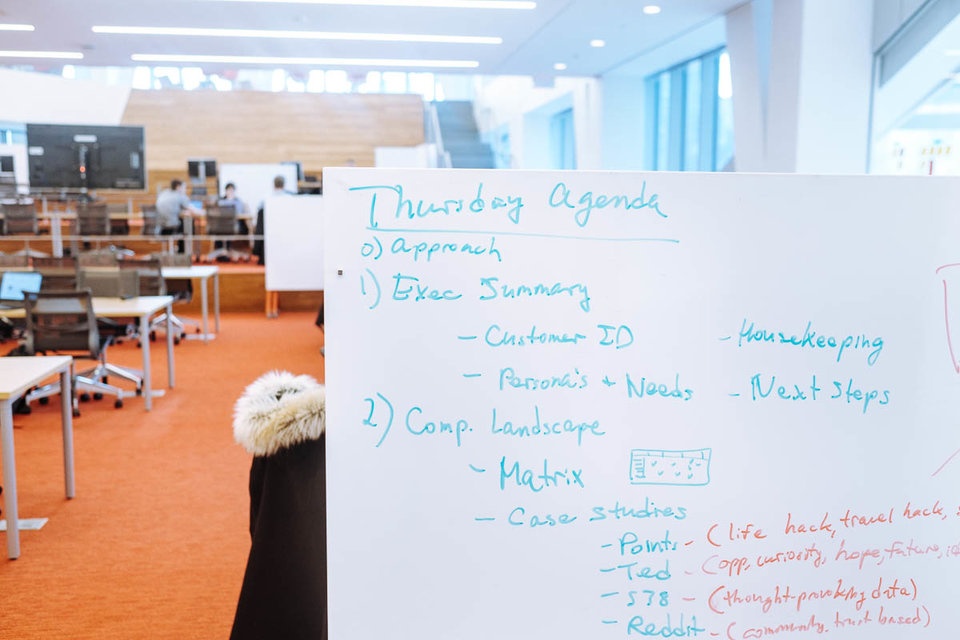 Thursday Agenda
0) Approach
1) Exec Summary
- Customer ID
- Housekeeping
- Persona's + Needs
- Next Steps
2) Comp. Landscape
- Matrix
- Case Studies
- Points - (life hack, travel hack,
- Ted - (opp, curiosity, hope, future,
- 538 - (thought-provoking data)
- Reddit - (community, trust based)